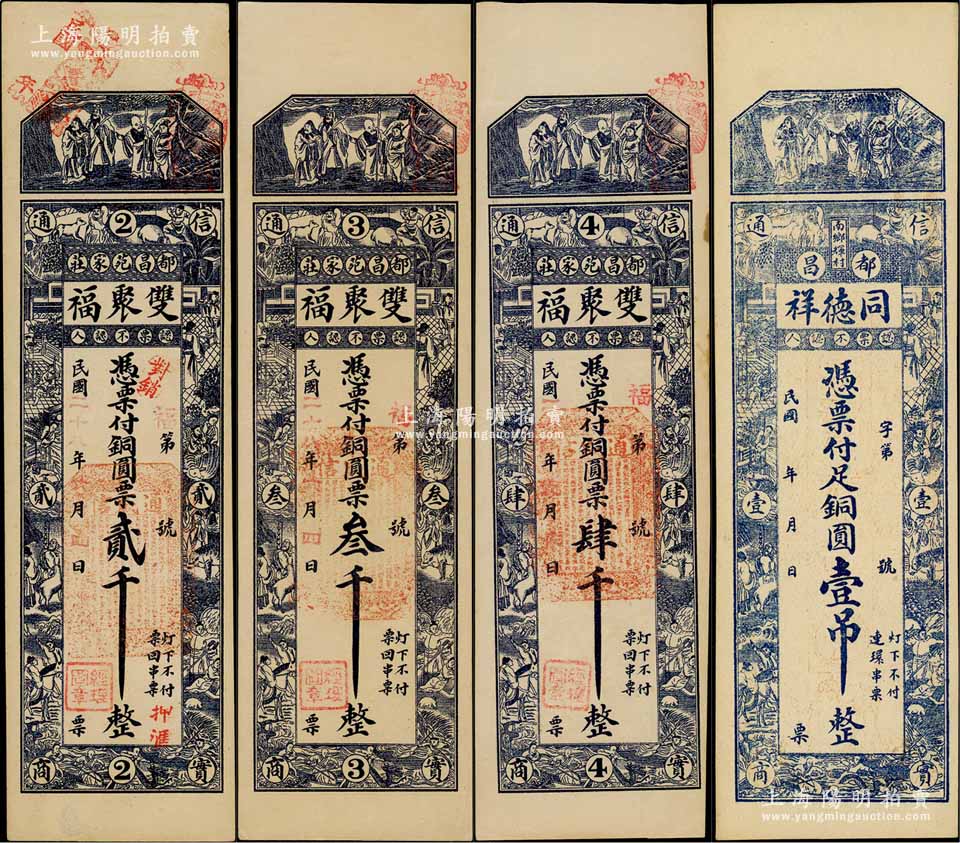 上海陽明拍賣
www.yangmingauction.com
通 2 信
都昌沱家莊
雙聚福
認票不認人
憑票付銅圓票貳千整
民國 年 月 日
第 號
福
對銷
灯下不付
票回串票
票
貳 貳
經理圖章
押滙
商 2 實
通 3 信
都昌沱家莊
雙聚福
認票不認人
憑票付銅圓票叁千整
民國 年 月 日
第 號
灯下不付
票回串票
票
叁 叁
經理圖章
商 3 實
上海陽明拍賣
www.yangmingauction.com
通 4 信
都昌沱家莊
雙聚福
認票不認人
憑票付銅圓票肆千整
民國 年 月 日
第 號
福
灯下不付
票回串票
票
肆 肆
經理圖章
商 4 實
上海陽明拍賣
www.yangmingauction.com
通 信
都昌
同德祥
認票不認人
憑票付足銅圓壹吊整
民國 年 月 日
字第 號
灯下不付
連環串票
票
壹 壹
商 實
上海陽明拍賣
www.yangmingauction.com